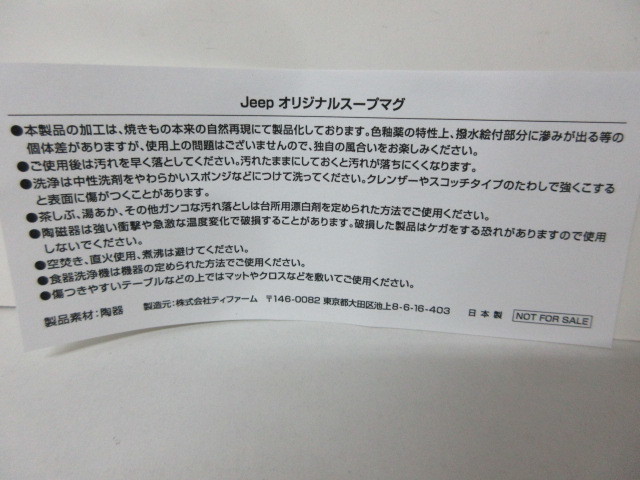 Jeep オリジナルスープマグ
●本製品の加工は、焼きもの本来の自然再現にて製品化しております。色釉薬の特性上、撥水絵付部分に滲みが出る等の
個体差がありますが、使用上の問題はございませんので、独自の風合いをお楽しみください。
●ご使用後は汚れを早く落としてください。汚れたままにしておくと汚れが落ちにくくなります。
●洗浄は中性洗剤をやわらかいスポンジなどにつけて洗ってください。クレンザーやスコッチタイプのたわしで強くこする
と表面に傷がつくことがあります。
●茶しぶ、湯あか、その他ガンコな汚れ落としは台所用漂白剤を定められた方法でご使用ください。
●陶磁器は強い衝撃や急激な温度変化で破損することがあります。破損した製品はケガをする恐れがありますので使用
しないでください。
●空焚き、直火使用、煮沸は避けてください。
●食器洗浄機は機器の定められた方法でご使用ください。
●傷つきやすいテーブルなどの上ではマットやクロスなどを敷いてご使用ください。
製品素材：陶器 製造元：株式会社ティファーム 〒146-0082 東京都大田区池上8-6-16-403 日本製 NOT FOR SALE